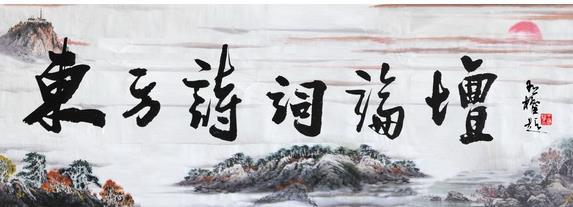 東方詩詞論壇